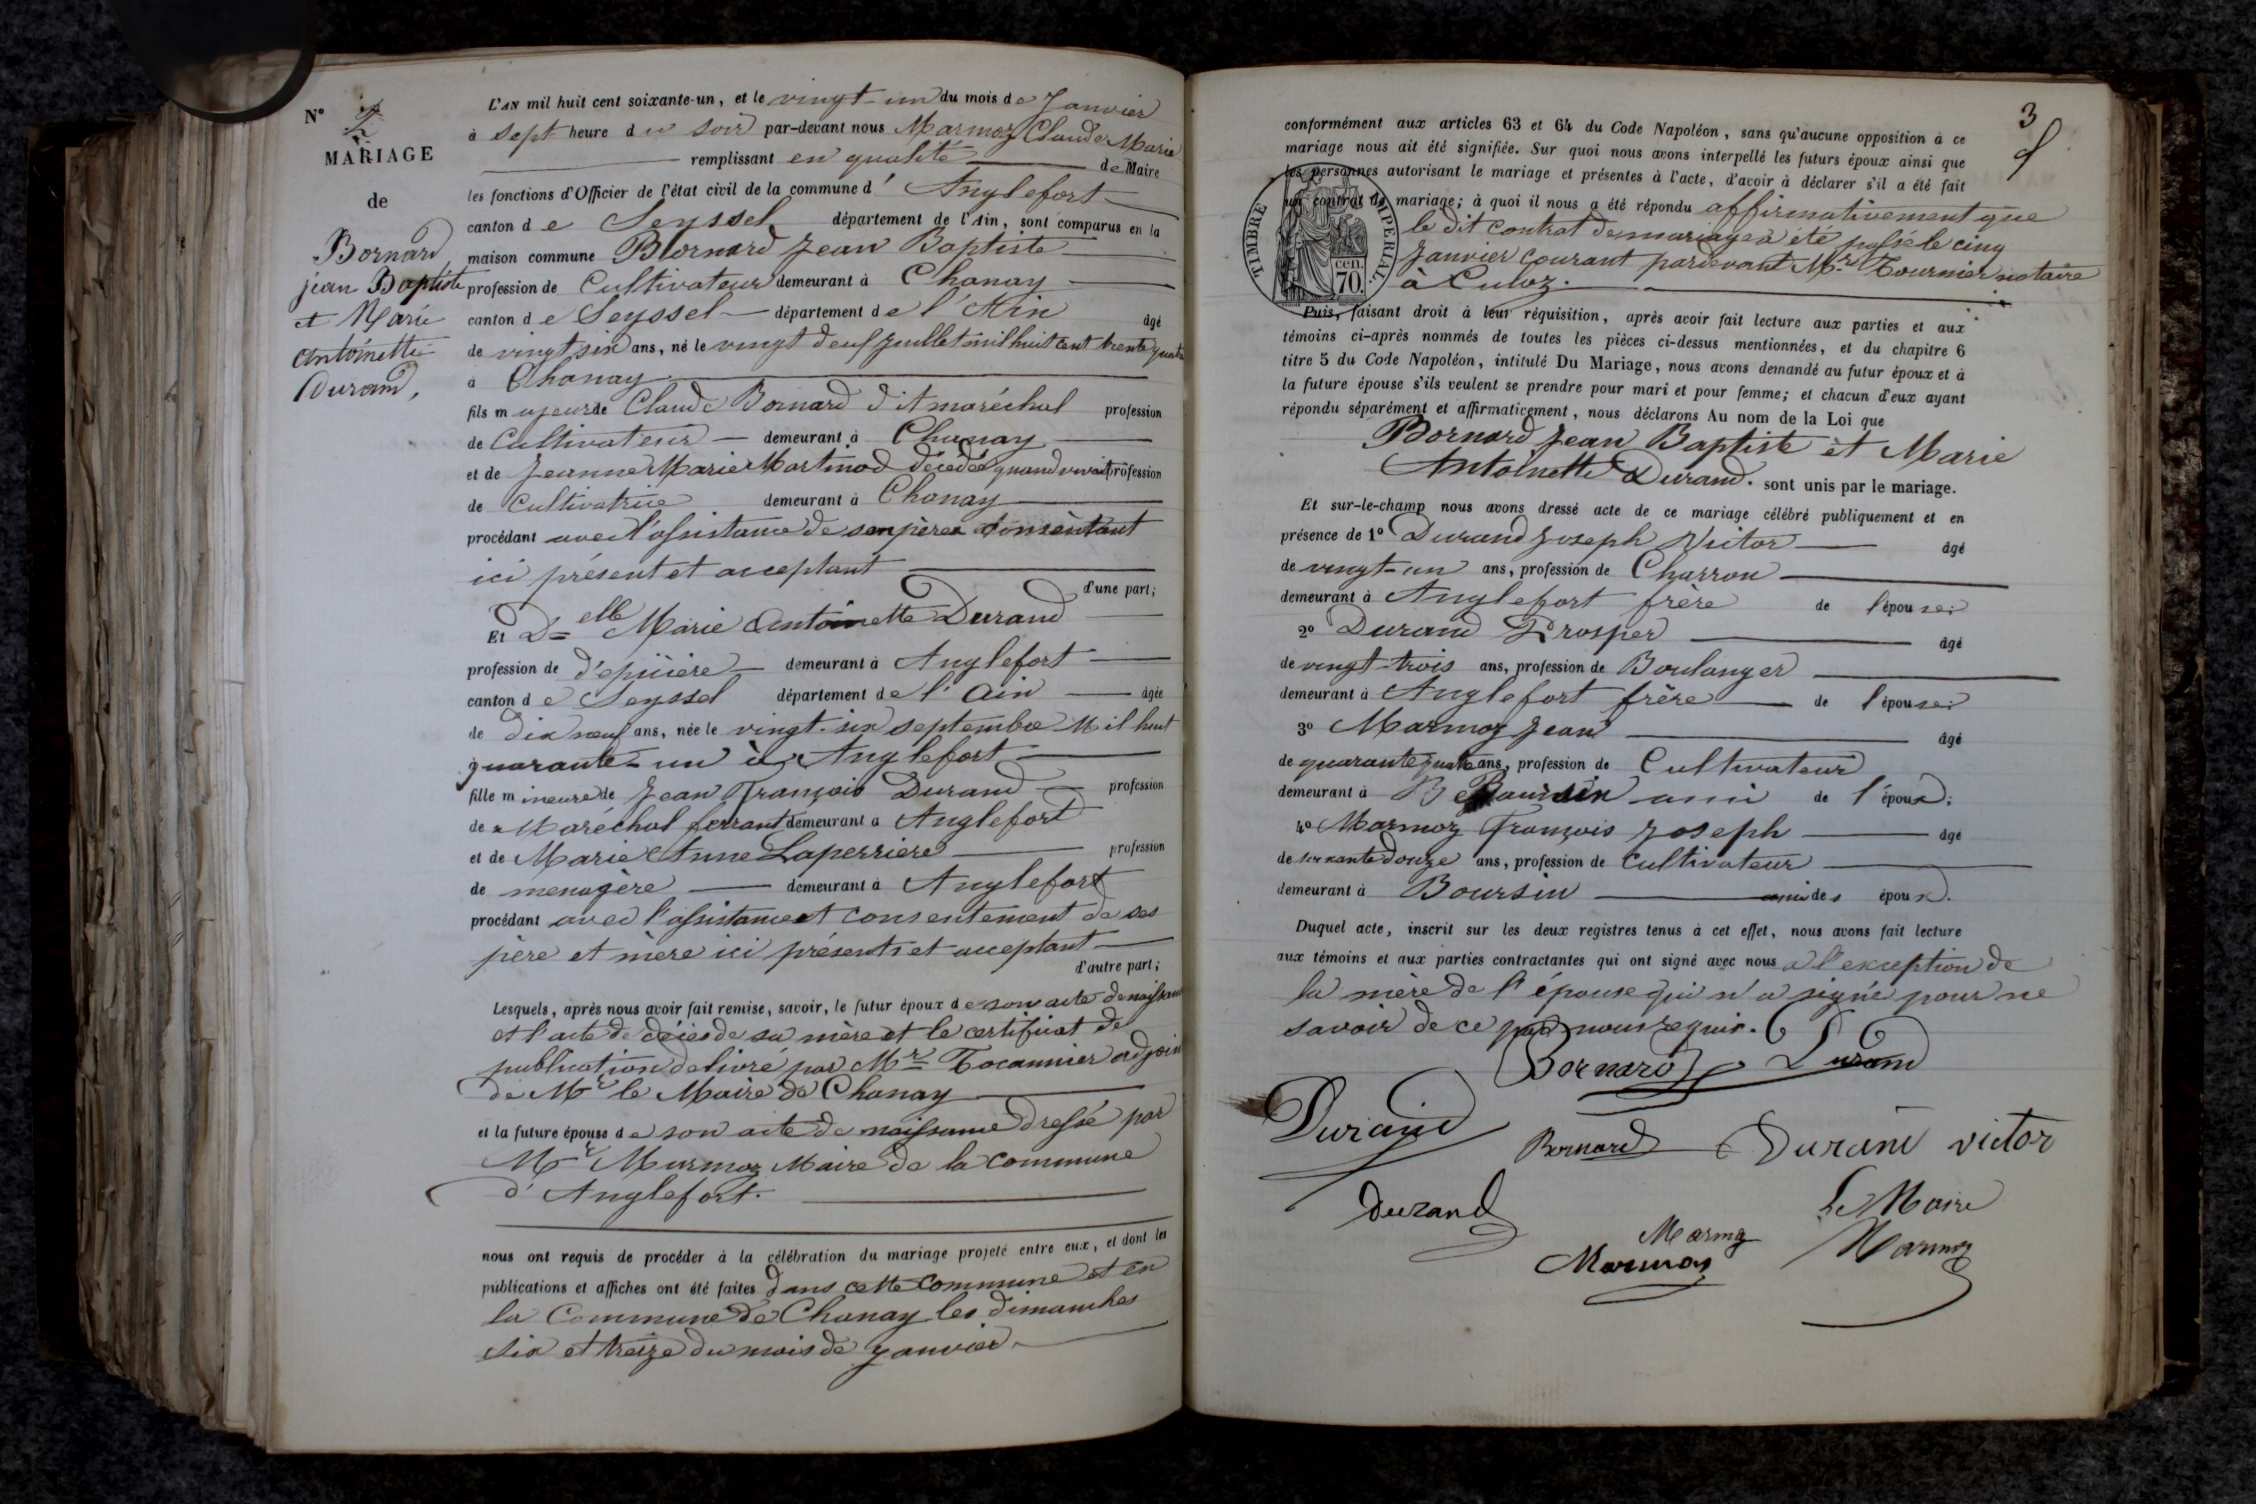 N° 2
MARIAGE
de
Bornard
jean Baptiste
et Marie
antoinette
Durand,
L'AN mil huit cent soixante-un, et le vingt-un du mois de Janvier
à sept heure du soir par-devant nous Marmoz Claude Marie
remplissant en qualité de Maire
les fonctions d'Officier de l'état civil de la commune d' Anglefort
canton de Seyssel département de l'Ain, sont comparus en la
maison commune Bornard Jean Baptiste
profession de Cultivateur demeurant à Chanay
canton de Seyssel département de l'Ain âgé
de vingt six ans, né le vingt deux Juillet mil huit cent trente quatre
à Chanay
fils majeur de Claude Bornard dit maréchal profession
de Cultivateur demeurant à Chanay
et de Jeanne Marie Martinod décédée quand vivait profession
de Cultivatrice demeurant à Chanay
procédant avec l'assistance de son père consentant
ici présent et acceptant
d'une part;
Et Delle Marie Antoinette Durand
profession de d'epicière demeurant à Anglefort
canton de Seyssel département de l'Ain âgée
de dix neuf ans, née le vingt-six septembre Mil huit
quarante-un à Anglefort
fille mineure de Jean François Durand profession
de Maréchal ferrant demeurant à Anglefort
et de Marie Anne Laperriere profession
de menagère demeurant à Anglefort
procédant avec l'assistance et consentement de ses
père et mère ici présents et acceptant
d'autre part;
Lesquels, après nous avoir fait remise, savoir, le futur époux de son acte de naissance
et l'acte de décès de sa mère et le certificat de
publication delivré par Mr Tocannier adjoin
de Mr le Maire de Chanay
et la future épouse de son acte de naissance dressé par
Mr Marmoz Maire de la Commune
d'Anglefort.
nous ont requis de procéder à la célébration du mariage projeté entre eux, et dont les
publications et affiches ont été faites dans cette Commune et en
la Commune de Chanay les dimanches
six et treize du mois de janvier
3
conformément aux articles 63 et 64 du Code Napoléon, sans qu'aucune opposition à ce
mariage nous ait été signifiée. Sur quoi nous avons interpellé les futurs époux ainsi que
les personnes autorisant le mariage et présentes à l'acte, d'avoir à déclarer s'il a été fait
un contrat de mariage; à quoi il nous a été répondu affirmativement que
le dit Contrat de mariage à été passé le cinq
Janvier courant pardevant Mr Tournier notaire
à Culoz.
TIMBRE IMPERIAL
70 cen.
Puis, faisant droit à leur réquisition, après avoir fait lecture aux parties et aux
témoins ci-après nommés de toutes les pièces ci-dessus mentionnées, et du chapitre 6
titre 5 du Code Napoléon, intitulé Du Mariage, nous avons demandé au futur époux et à
la future épouse s'ils veulent se prendre pour mari et pour femme; et chacun d'eux ayant
répondu séparément et affirmativement, nous déclarons Au nom de la Loi que
Bornard Jean Baptiste et Marie
Antoinette Durand. sont unis par le mariage.
Et sur-le-champ nous avons dressé acte de ce mariage célébré publiquement et en
présence de 1° Durand Joseph Victor âgé
de vingt-un ans, profession de Charron
demeurant à Anglefort frère de l'épouse;
2° Durand Prosper âgé
de vingt-trois ans, profession de Boulanger
demeurant à Anglefort frère de l'épouse;
3° Marmoz Jean âgé
de quarante quatre ans, profession de Cultivateur
demeurant à Boursin ami de l'époux;
4° Marmoz François Joseph âgé
de soixante douze ans, profession de Cultivateur
demeurant à Boursin ami des époux.
Duquel acte, inscrit sur les deux registres tenus à cet effet, nous avons fait lecture
aux témoins et aux parties contractantes qui ont signé avec nous a l'exception de
la mère de l'épouse qui n'a signé pour ne
savoir de ce par nous requis.
Bornard Durand
Durand Bornard Durand victor
durand Le Maire
Marmoz Marmoz
Marmoz